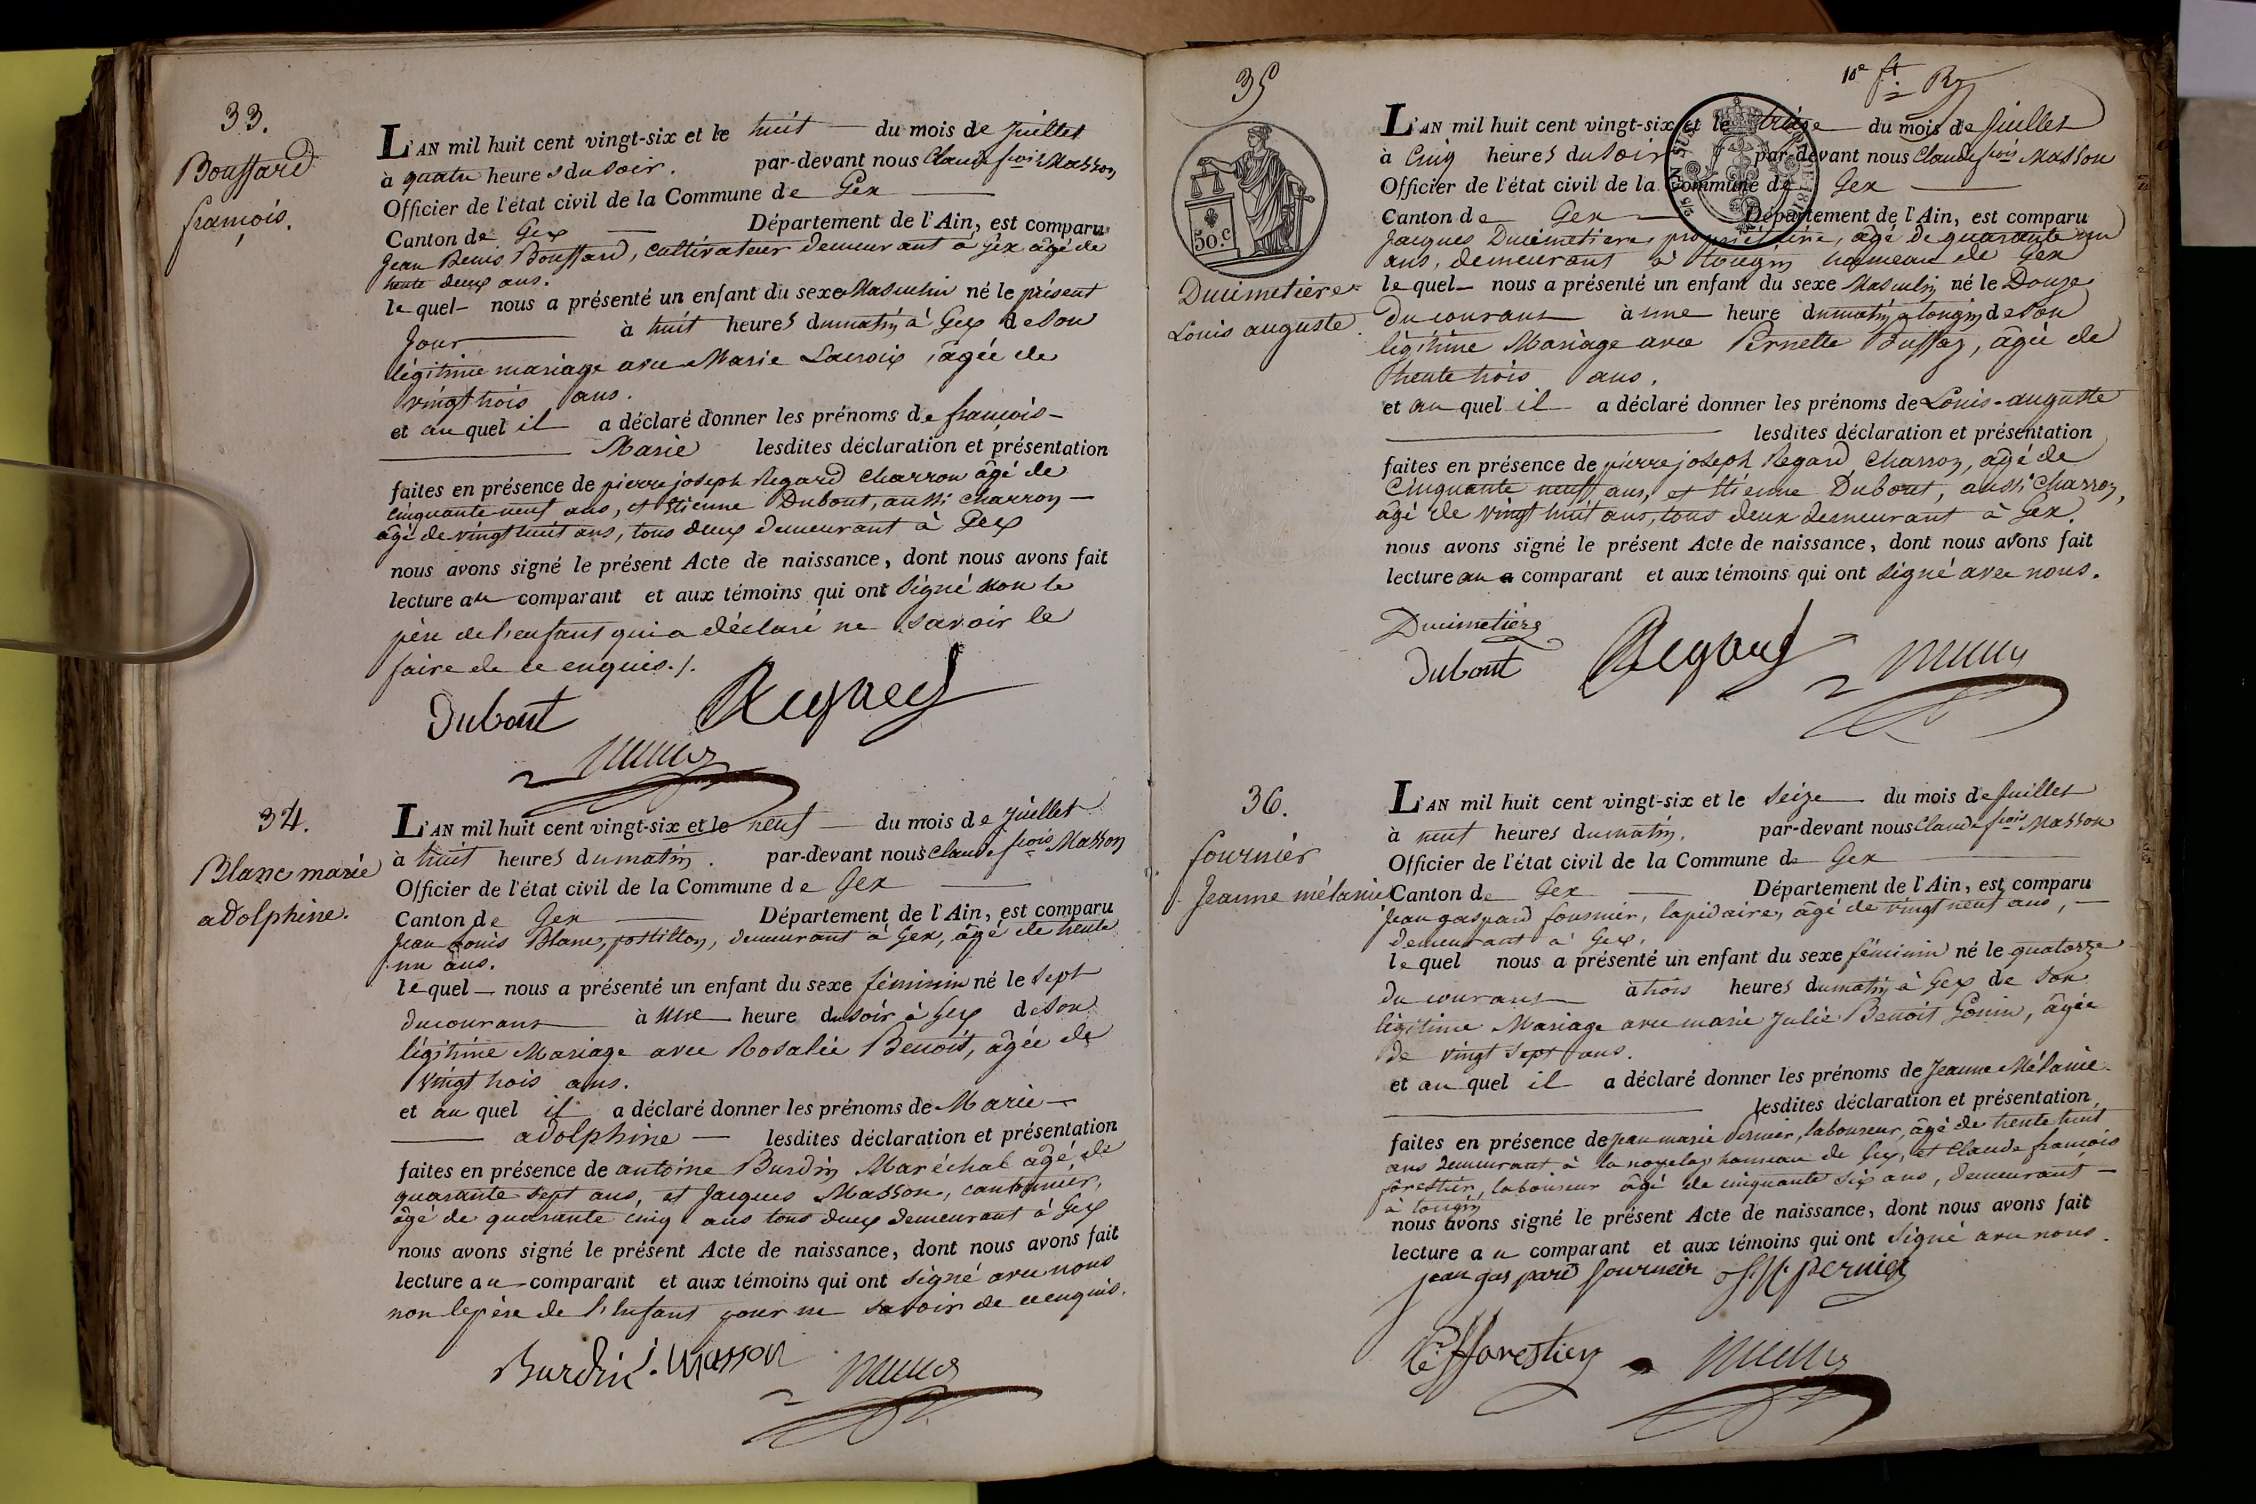 33.
Bouffard
françois.
L'AN mil huit cent vingt-six et le huit du mois de Juillet
à quatre heures du soir. par-devant nous Claude fçois Masson
Officier de l'état civil de la Commune de Gex
Canton de Gex Département de l'Ain, est comparu
Jean Denis Bouffard, cultivateur demeurant à Gex âgé de
trente deux ans.
lequel nous a présenté un enfant du sexe Masculin né le présent
Jour à huit heures du matin à Gex de son
légitime mariage avec Marie Lacroix, âgée de
vingt trois ans.
et au quel il a déclaré donner les prénoms de françois-
Marie lesdites déclaration et présentation
faites en présence de pierre joseph Regard charron âgé de
cinquante neuf ans, et Etienne Dubout, aussi charron
âgé de vingt huit ans, tous deux demeurant à Gex
nous avons signé le présent Acte de naissance, dont nous avons fait
lecture au comparant et aux témoins qui ont signé non le
père de l'enfant qui a déclaré ne savoir le
faire de ce enquis./.
Dubout Regard
34.
Blanc marie
adolphine.
L'AN mil huit cent vingt-six et le neuf du mois de Juillet
à huit heures du matin. par-devant nous Claude fçois Masson
Officier de l'état civil de la Commune de Gex
Canton de Gex Département de l'Ain, est comparu
Jean Louis Blanc, postillon, demeurant à Gex, âgé de trente
un ans.
lequel nous a présenté un enfant du sexe féminin né le sept
du courant à une heure du soir à Gex de son
légitime Mariage avec Rosalie Benoit, âgée de
vingt trois ans.
et au quel il a déclaré donner les prénoms de Marie
adolphine lesdites déclaration et présentation
faites en présence de antoine Burdin Maréchal âgé de
quarante sept ans, et Jacques Masson, cantonnier,
âgé de quarante cinq ans tous deux demeurant à Gex
nous avons signé le présent Acte de naissance, dont nous avons fait
lecture au comparant et aux témoins qui ont signé avec nous
non le père de l'Enfant pour ne savoir de ce enquis.
Burdin J. Masson
35
50.c
Ducimetière
Louis auguste.
L'AN mil huit cent vingt-six et le treize du mois de Juillet
à Cinq heures du soir par-devant nous Claude fçois Masson
Officier de l'état civil de la Commune de Gex
Canton de Gex Département de l'Ain, est comparu
Jacques Ducimetière, propriétaire, âgé de quarante un
ans, demeurant à tougin hameau de Gex
lequel nous a présenté un enfant du sexe Masculin né le Douze
du courant à une heure du matin à tougin de son
légitime Mariage avec Pernette Buffaz, âgée de
trente trois ans.
et au quel il a déclaré donner les prénoms de Louis-auguste
lesdites déclaration et présentation
faites en présence de pierre joseph Regard, Charron, âgé de
Cinquante neuf ans, et Etienne Dubout, aussi charron,
âgé de vingt huit ans, tous deux demeurant à Gex.
nous avons signé le présent Acte de naissance, dont nous avons fait
lecture au comparant et aux témoins qui ont signé avec nous.
Ducimetière
Dubout Regard
36.
fournier
Jeanne mélanie
L'AN mil huit cent vingt-six et le seize du mois de Juillet
à neuf heures du matin. par-devant nous Claude fçois Masson
Officier de l'état civil de la Commune de Gex
Canton de Gex Département de l'Ain, est comparu
Jean gaspard fournier, lapidaire, âgé de vingt neuf ans,
demeurant à Gex,
lequel nous a présenté un enfant du sexe féminin né le quatorze
du courant à trois heures du matin à Gex de son
légitime Mariage avec marie Julie Benoit Gonin, âgée
de vingt sept ans.
et au quel il a déclaré donner les prénoms de Jeanne Mélanie
lesdites déclaration et présentation
faites en présence de jean marie Pernier, laboureur, âgé de trente huit
ans demeurant à hameau de Gex, et Claude françois
forestier, laboureur âgé de cinquante six ans, demeurant
à tougin
nous avons signé le présent Acte de naissance, dont nous avons fait
lecture au comparant et aux témoins qui ont signé avec nous.
jean gaspard fournier pernier
C. f forestier